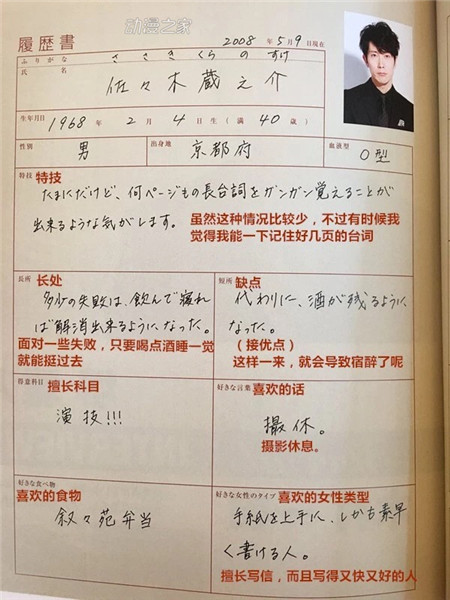 动漫之家
履歴書 2008年5月9日現在
ふりがな ささき くらのすけ
氏名 佐々木 蔵之介
生年月日 1968年 2月 4日生(満40歳)
性別 男 出身地 京都府 血液型 O型
特技 特技
たまにだけど、何ページもの長台詞をガンガン覚えることが
出来るような気がします。
虽然这种情况比较少，不过有时候我
觉得我能一下记住好几页的台词
長所 长处
多少の失敗は、飲んで寝れ
ば解消出来るようになった。
面对一些失败，只要喝点酒睡一觉
就能挺过去
短所 缺点
代わりに、酒が残るように
なった。
（接优点）
这样一来，就会导致宿醉了呢
得意科目 擅长科目
演技!!!
好きな言葉 喜欢的话
撮休。
摄影休息。
好きな食べ物
喜欢的食物
叙々苑弁当
好きな女性のタイプ 喜欢的女性类型
手紙を上手に、しかも素早
く書ける人。
擅长写信，而且写得又快又好的人